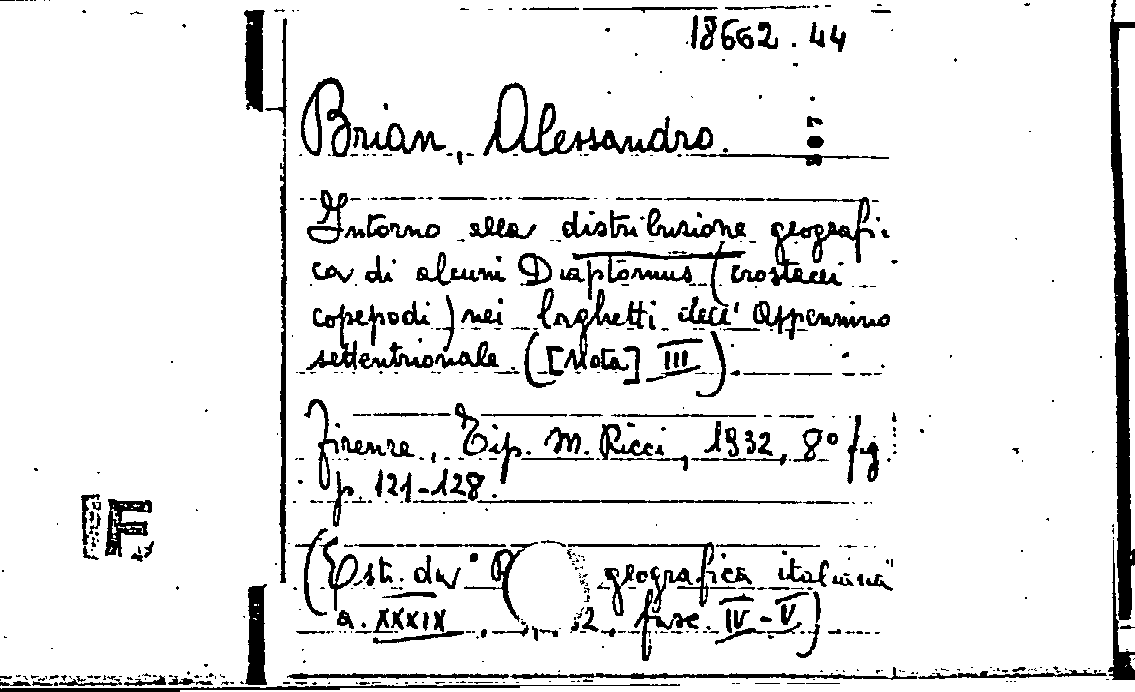 18662.44
Brian, Alessandro.
Intorno alla distribuzione geografi-
ca di alcuni Diaptomus (crostacei
copepodi) nei laghetti dell' Appennino
settentrionale. ([Nota] III).
Firenze, Tip. M. Ricci, 1932, 8° fig.
p. 121-128.
(Estr. da " geografica italiana"
a. XXXIX, fasc. IV-V)